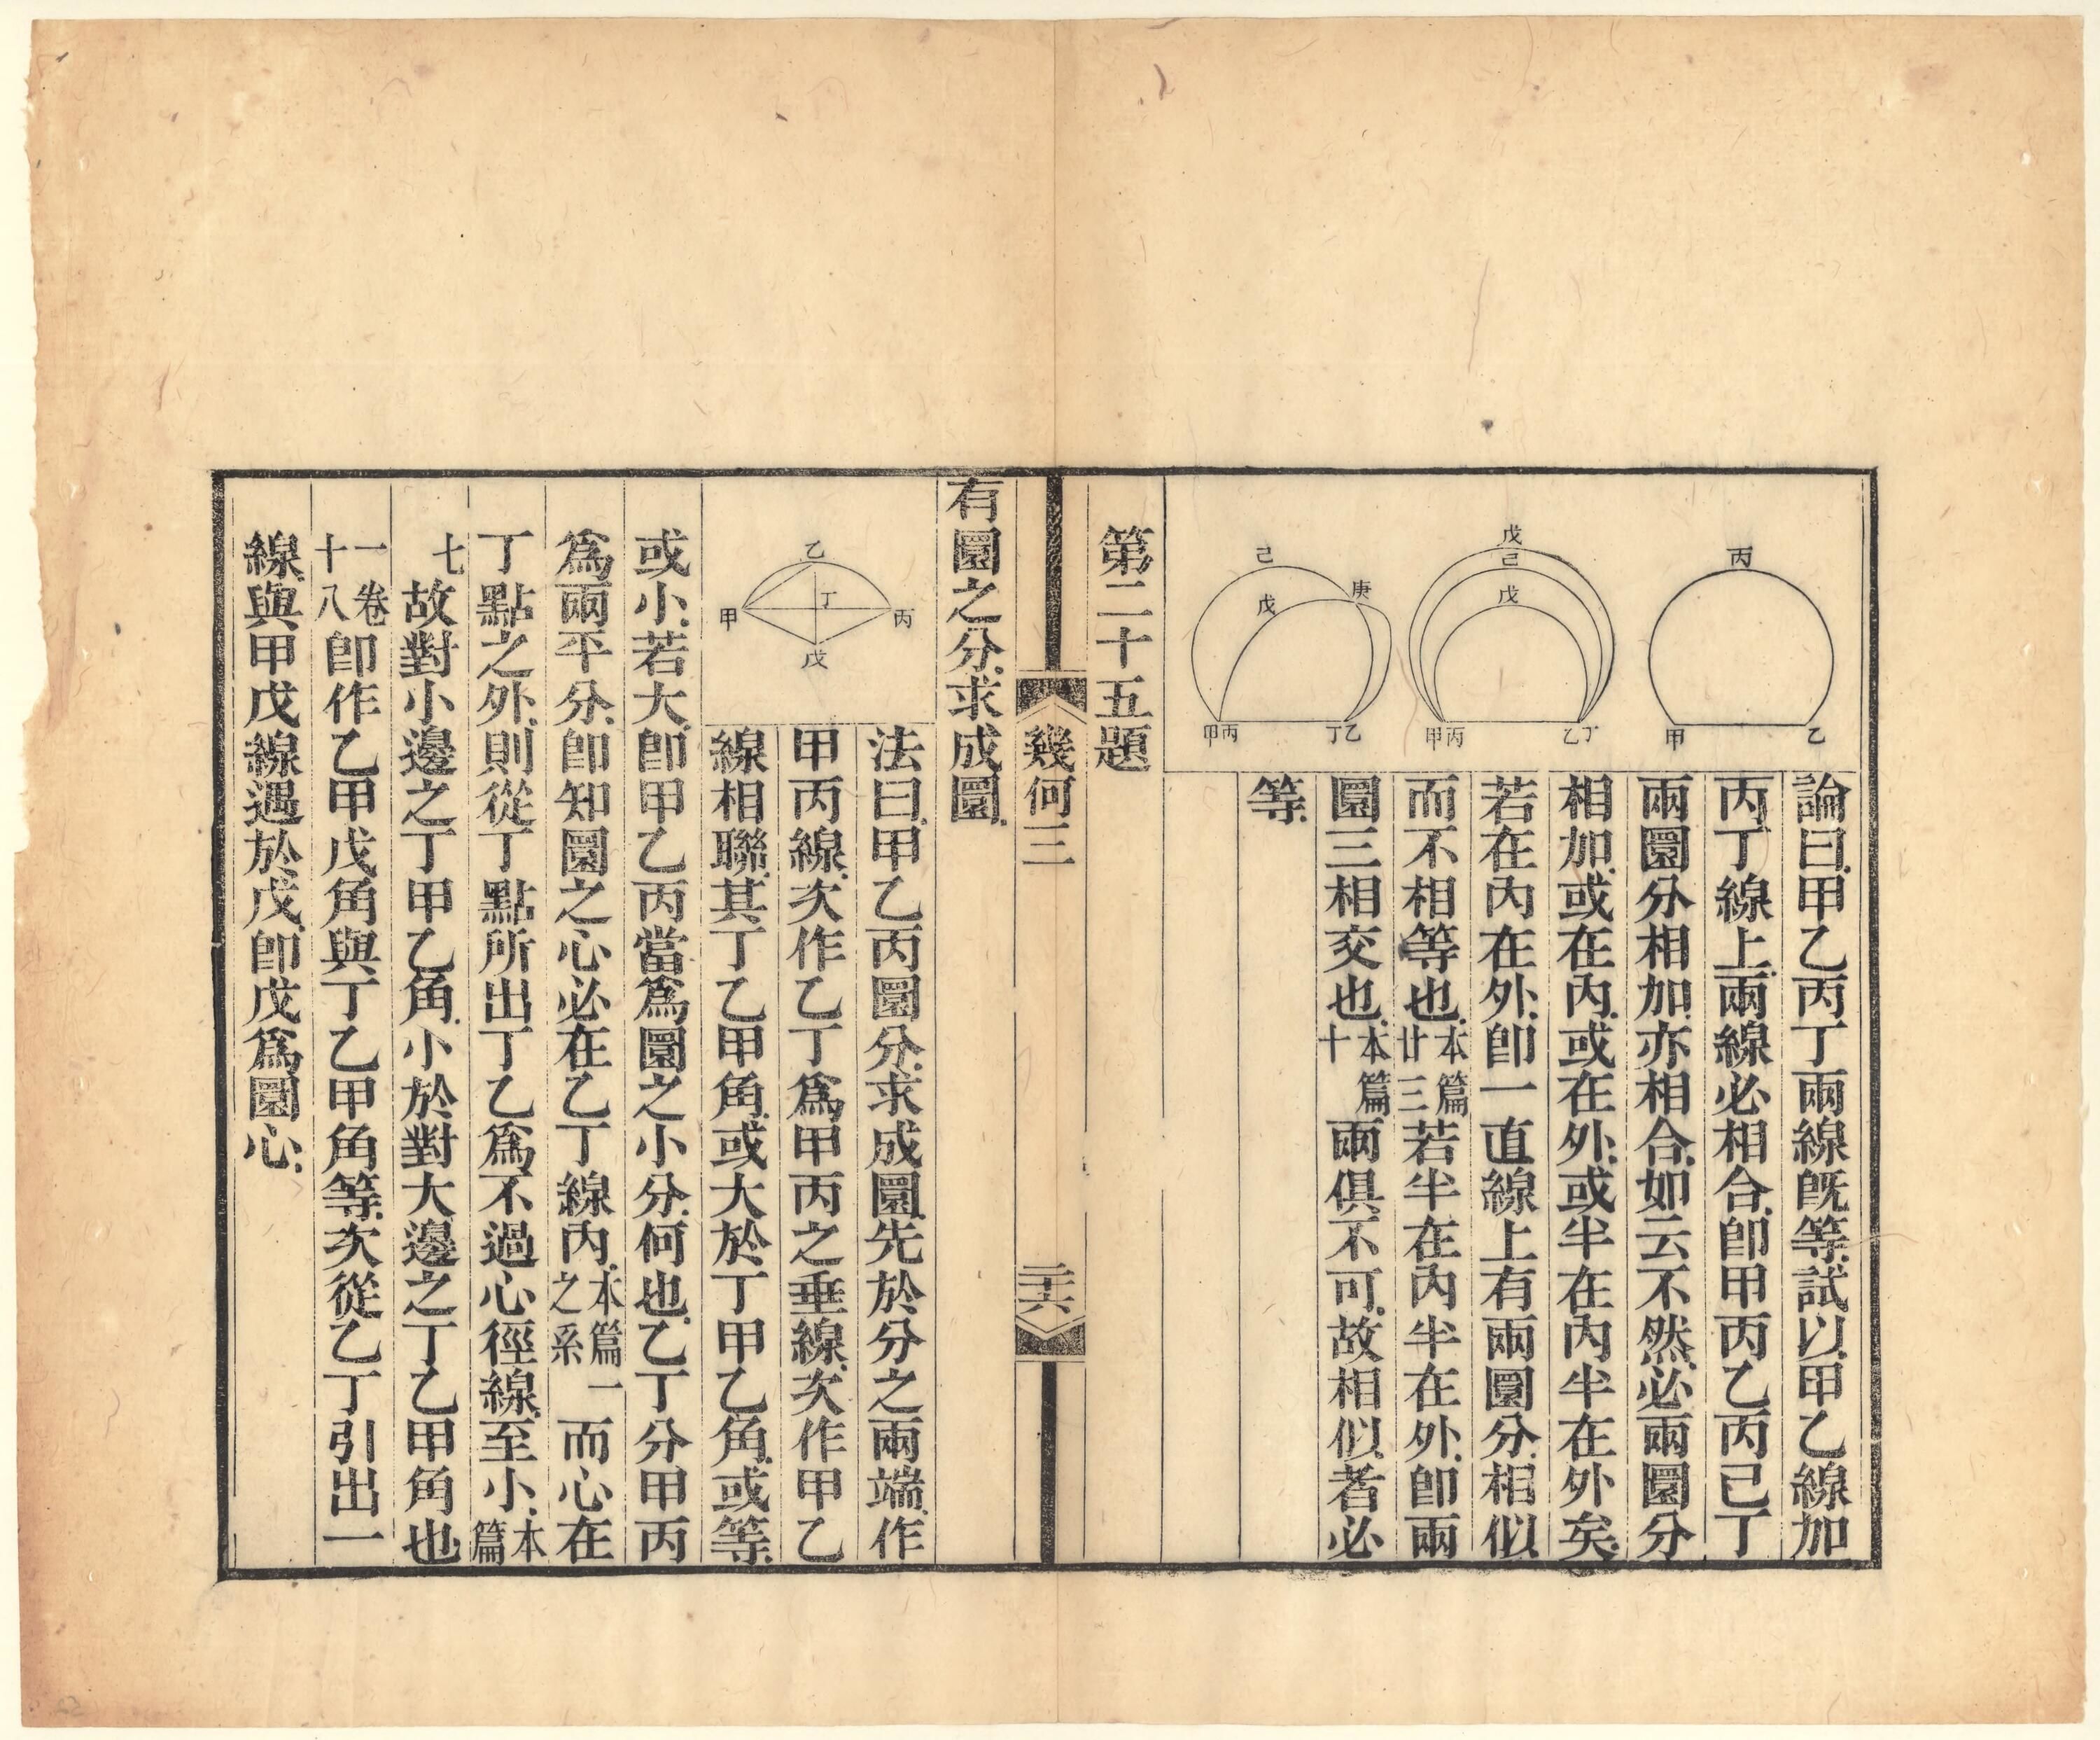 丙
甲
乙
戊
己
戊
甲丙
乙丁
己
戊
庚
甲丙
丁乙
論曰甲乙丙丁兩線旣等試以甲乙線加
丙丁線上兩線必相合卽甲丙乙丙己丁
兩圜分相加亦相合如云不然必兩圜分
相加或在內或在外或半在內半在外矣
若在內在外卽一直線上有兩圜分相似
而不相等也本篇廿三若半在內半在外卽兩
圜三相交也本篇十兩俱不可故相似者必
等
第二十五題
幾何三
二十六
有圜之分求成圜
乙
甲
丁
丙
戊
法曰甲乙丙圜分求成圜先於分之兩端作
甲丙線次作乙丁爲甲丙之垂線次作甲乙
線相聯其丁乙甲角或大於丁甲乙角或等
或小若大卽甲乙丙當爲圜之小分何也乙丁分甲丙
爲兩平分卽知圜之心必在乙丁線內本篇一之系而心在
丁點之外則從丁點所出丁乙爲不過心徑線至小本篇
七故對小邊之丁甲乙角小於對大邊之丁乙甲角也
一卷十八卽作乙甲戊角與丁乙甲角等次從乙丁引出一
線與甲戊線遇於戊卽戊爲圜心